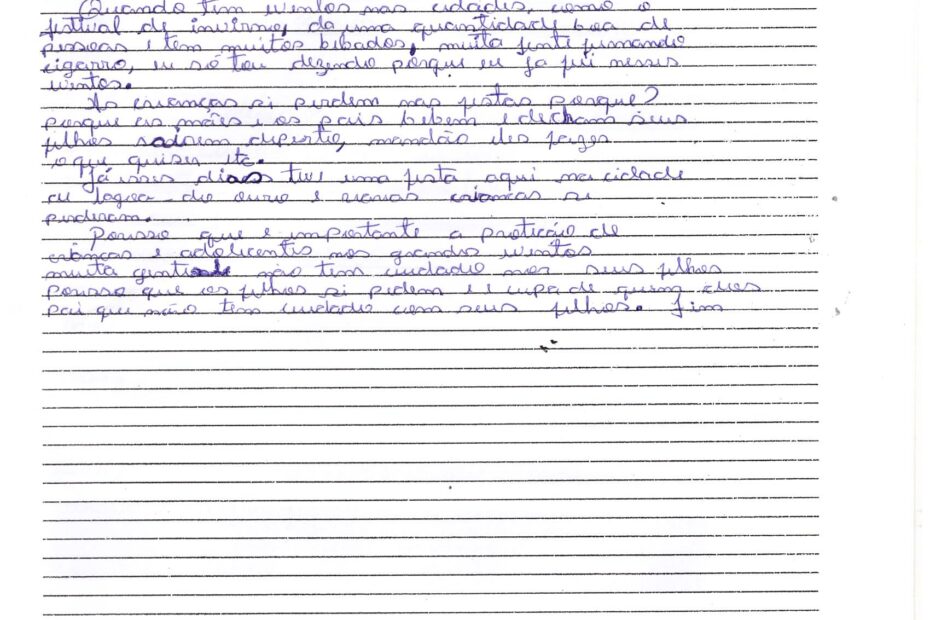 Quando tem eventos nas cidades, como o
festival de inverno, da uma quantidade boa de
pessoas e tem muitos bebados, muita jente fumando
cigarro, eu só tou dezendo porque eu ja fui nesses
eventos.
As crianças si perdem nas festas porque?
porque as mães e os pais bebem e decham seus
filhos sairem dipertio, mandão eles fazer
o que quiser etc.
Já esses dias teve uma festa aqui na cidade
eu lagoa do ouro e varias crianças si
perderam.
Pensso que e importante a proticão de
crianças e adolicentes nos grandes eventos
muita gente não tem cuidado nos seus filhos
Pensso que os filhos si pedem e a cupa de quem dos
pai que não tem cuidado com seus filhos. fim